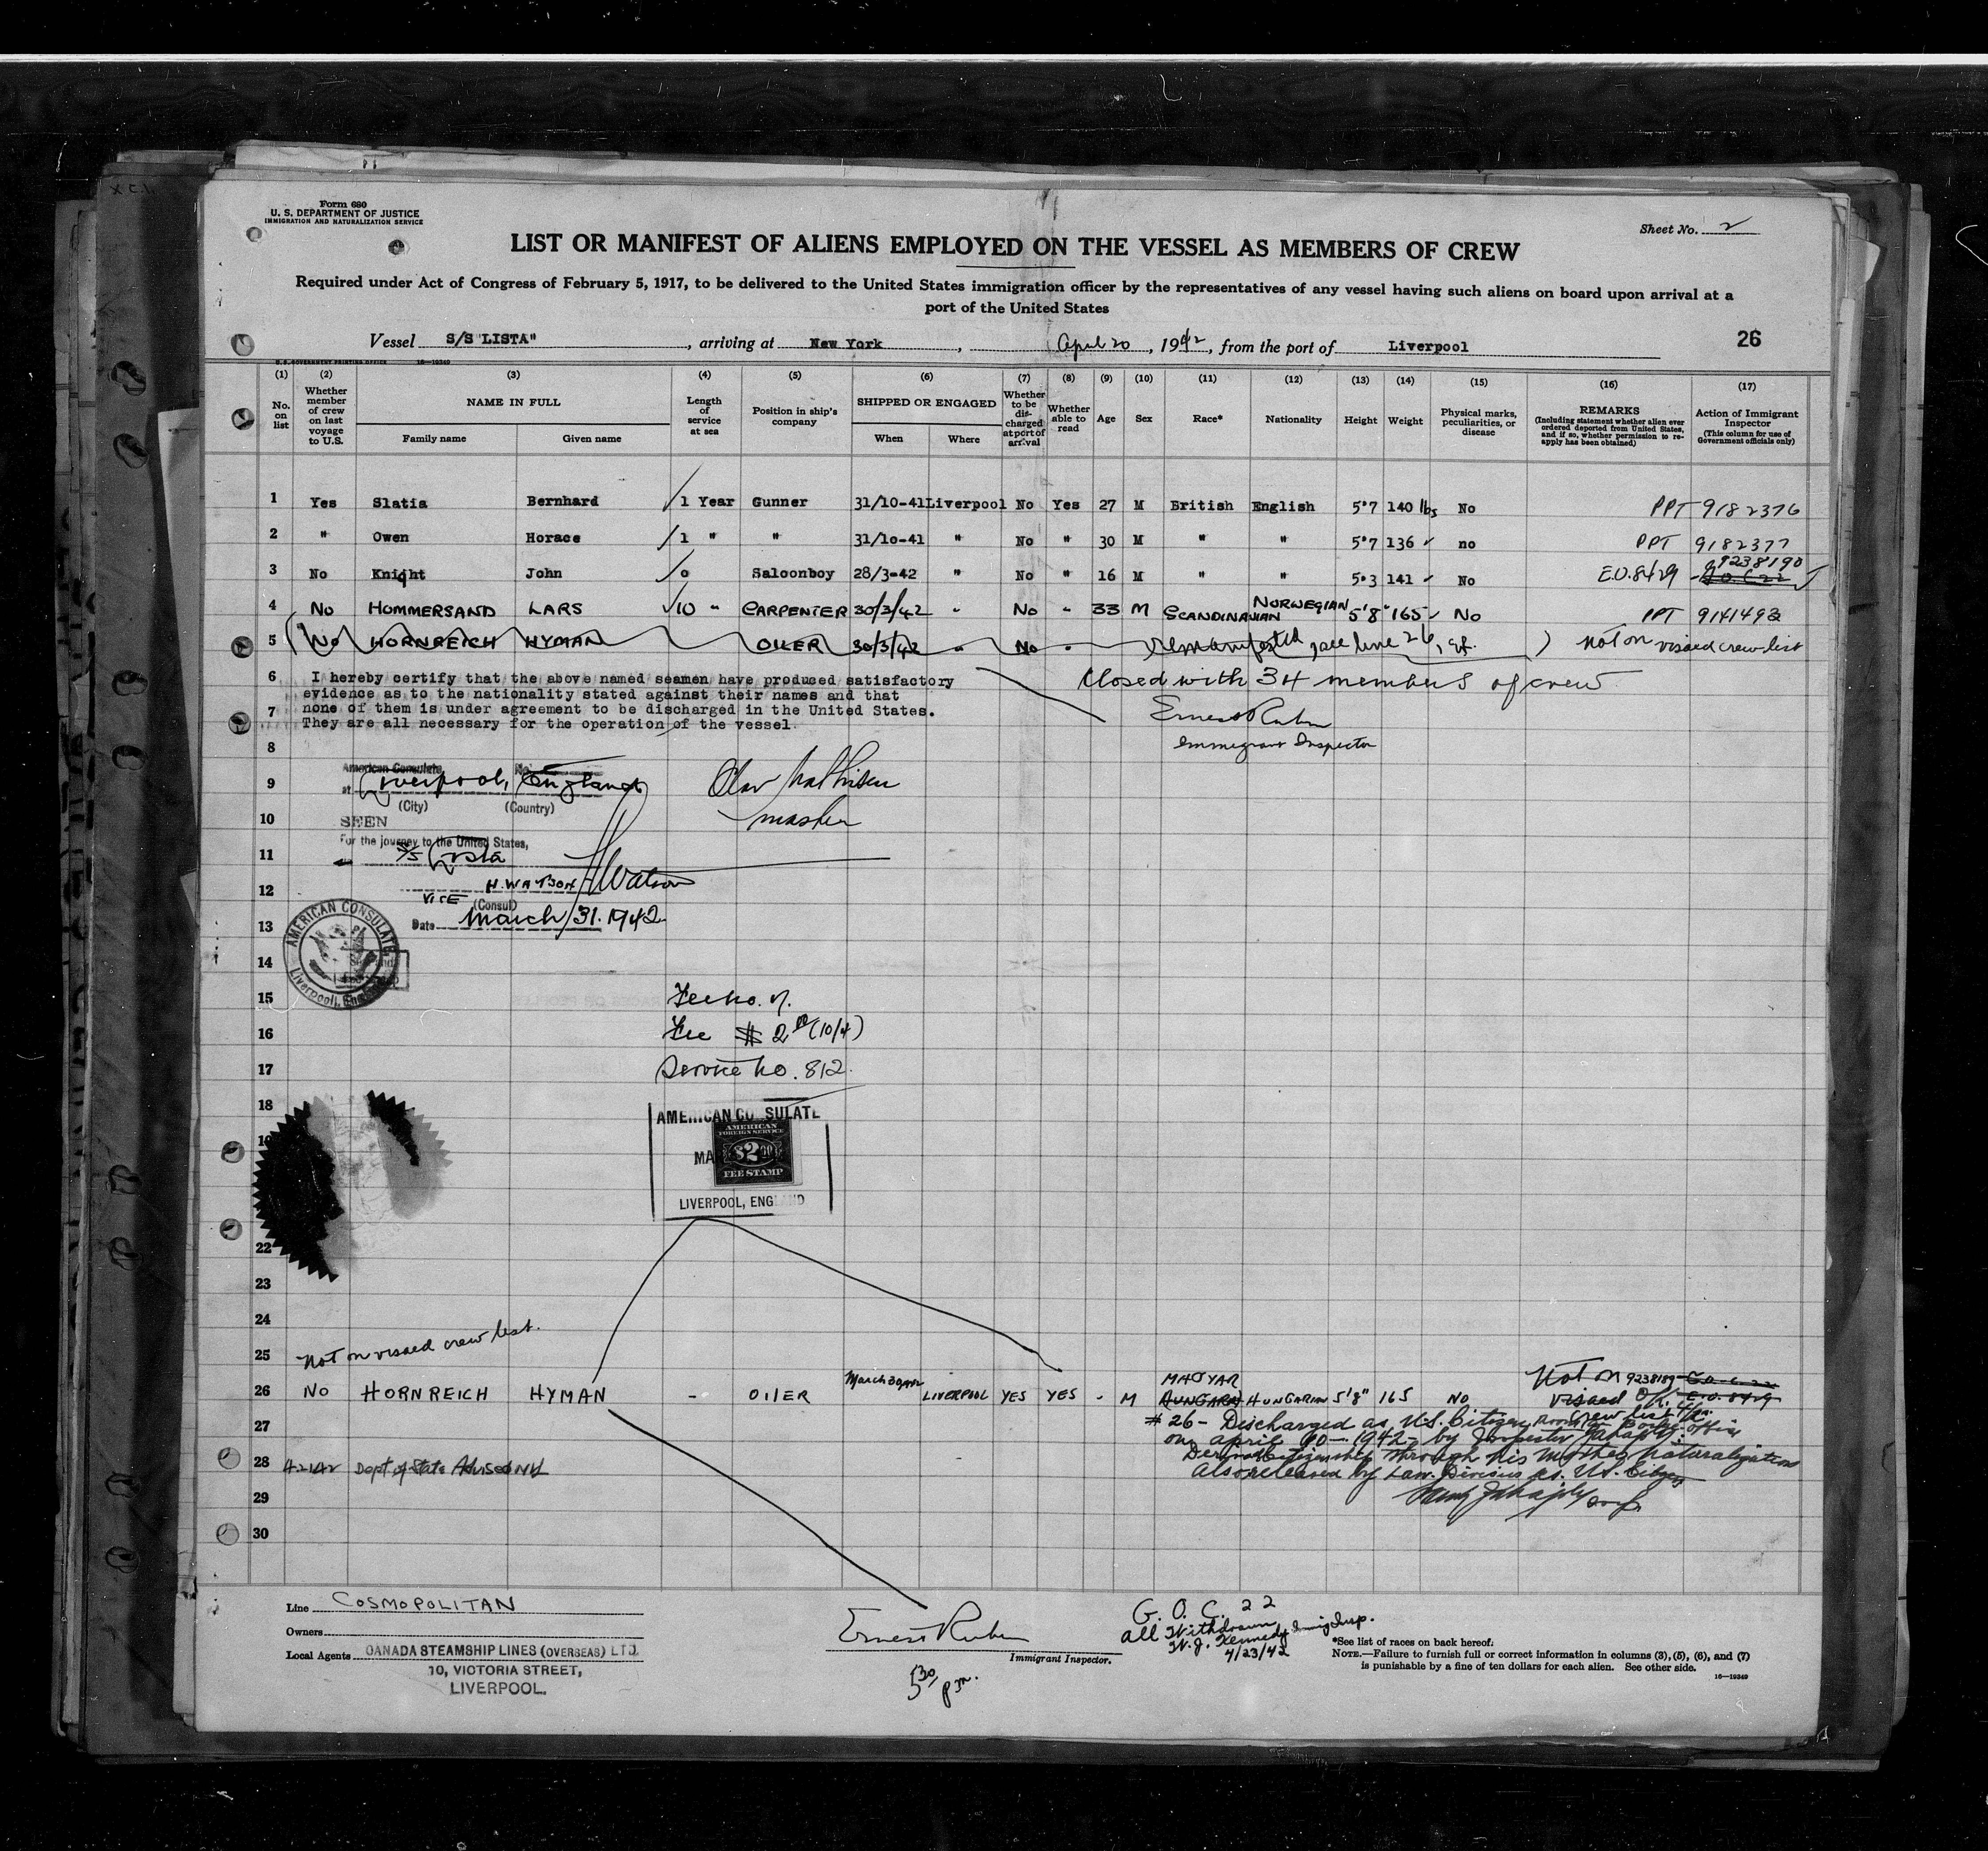 Form 680
U. S. DEPARTMENT OF JUSTICE
IMMIGRATION AND NATURALIZATION SERVICE
Sheet No. 2
LIST OR MANIFEST OF ALIENS EMPLOYED ON THE VESSEL AS MEMBERS OF CREW
Required under Act of Congress of February 5, 1917, to be delivered to the United States immigration officer by the representatives of any vessel having such aliens on board upon arrival at a
port of the United States
Vessel S/S "LISTA", arriving at New York, April 20, 1942, from the port of Liverpool
26
U. S. GOVERNMENT PRINTING OFFICE 16—19349
(1) No. on list
(2) Whether member of crew on last voyage to U.S.
(3) NAME IN FULL
Family name
Given name
(4) Length of service at sea
(5) Position in ship's company
(6) SHIPPED OR ENGAGED
When
Where
(7) Whether to be discharged at port of arrival
(8) Whether able to read
(9) Age
(10) Sex
(11) Race*
(12) Nationality
(13) Height
(14) Weight
(15) Physical marks, peculiarities, or disease
(16) REMARKS
(Including statement whether alien ever ordered deported from United States, and if so, whether permission to reapply has been obtained)
(17) Action of Immigrant Inspector
(This column for use of Government officials only)
1 Yes Slatia Bernhard 1 Year Gunner 31/10-41 Liverpool No Yes 27 M British English 5'7 140 lbs No PPT 9182376
2 " Owen Horace 1 " " 31/10-41 " No " 30 M " " 5'7 136 no PPT 9182377
3 No Knight John 0 Saloonboy 28/3-42 " No " 16 M " " 5'3 141 No E.O.8429 9238190
4 No HOMMERSAND LARS 10 " CARPENTER 30/3/42 " No " 33 M SCANDINAVIAN NORWEGIAN 5'8" 165 No PPT 9141492
5 No HORNREICH HYMAN OILER 30/3/42 " No " remanifested, see line 26, Not on visaed crew list
6 I hereby certify that the above named seamen have produced satisfactory
evidence as to the nationality stated against their names and that
7 none of them is under agreement to be discharged in the United States.
They are all necessary for the operation of the vessel.
Closed with 34 members of crew
Ernest Rubin
Immigrant Inspector
8
American Consulate No.
9 at Liverpool, England
(City) (Country)
Olav Mathisen
master
10 SEEN
For the journey to the United States,
11 S/S Lista
12 H. WATSON HWatson
VICE (Consul)
13 Date March 31. 1942
AMERICAN CONSULATE
Liverpool, England
14
15
16 Fee $ 2 00 (10/4)
17 Service No. 812
18
AMERICAN CONSULATE
AMERICAN
FOREIGN SERVICE
$2 00
FEE STAMP
LIVERPOOL, ENGLAND
22
23
24
25 Not on visaed crew list.
26 No HORNREICH HYMAN - OILER March 30, 1942 LIVERPOOL YES YES - M MAGYAR HUNGARIAN 5'8" 165 NO Not on visaed crew list 9238189 E.O. 8429
27 #26 - Discharged as U.S. Citizen
on april 20 - 1942 - by Inspector
28 4-21-42 Dept of State Advised NY
Derived citizenship through his mothers naturalization
Also released by Law Division as U.S. Citizen
29
30
Line COSMOPOLITAN
Owners
Local Agents CANADA STEAMSHIP LINES (OVERSEAS) LTD.
10, VICTORIA STREET,
LIVERPOOL.
Ernest Rubin
Immigrant Inspector.
5 30 pm.
G. O. C. 22
all Withdrawn
W. J. Kennedy Immig Insp.
4/23/42
*See list of races on back hereof.
NOTE.—Failure to furnish full or correct information in columns (3), (5), (6), and (7)
is punishable by a fine of ten dollars for each alien. See other side.
16—19349